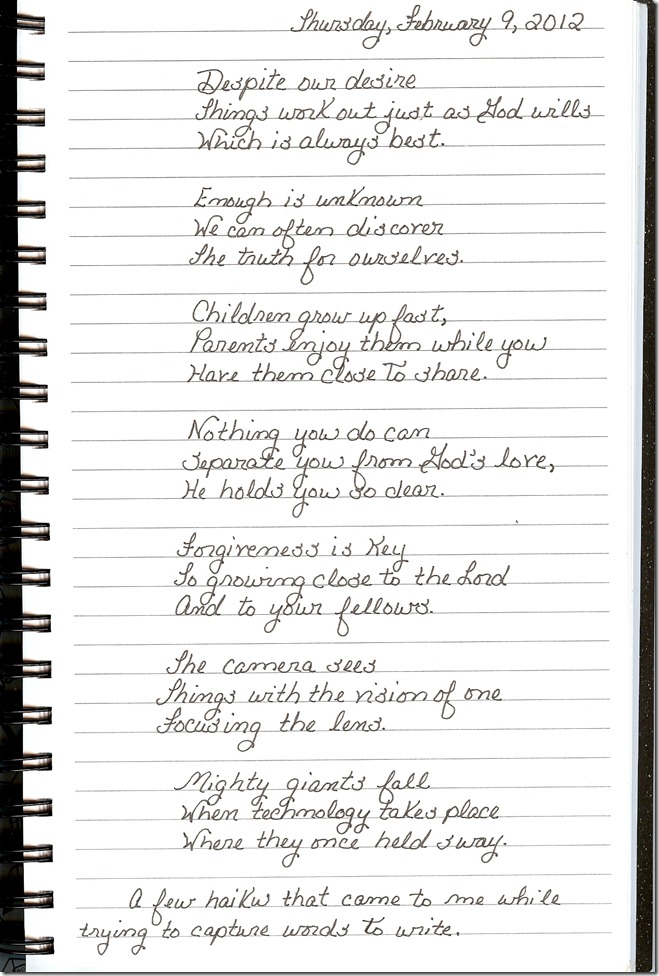 Thursday, February 9, 2012
Despite our desire
Things work out just as God wills
Which is always best.
Enough is unknown
We can often discover
The truth for ourselves.
Children grow up fast,
Parents enjoy them while you
Have them close to share.
Nothing you do can
separate you from God's love,
He holds you so dear.
Forgiveness is key
To growing close to the Lord
And to your fellows.
The camera sees
Things with the vision of one
Focusing the lens.
Mighty giants fall
When technology takes place
Where they once held sway.
A few haiku that came to me while
trying to capture words to write.